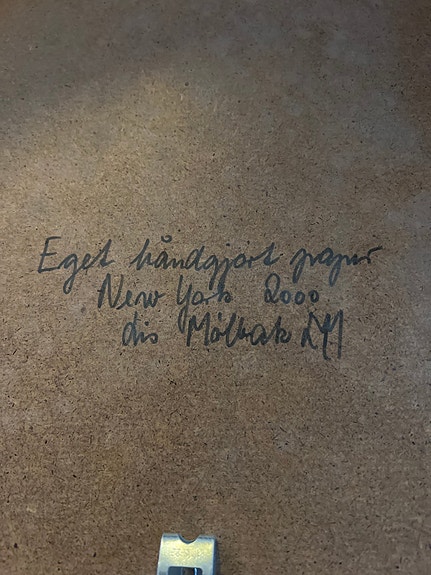 Eget håndgjort papir
New York 2000
Lis Mølbak LM